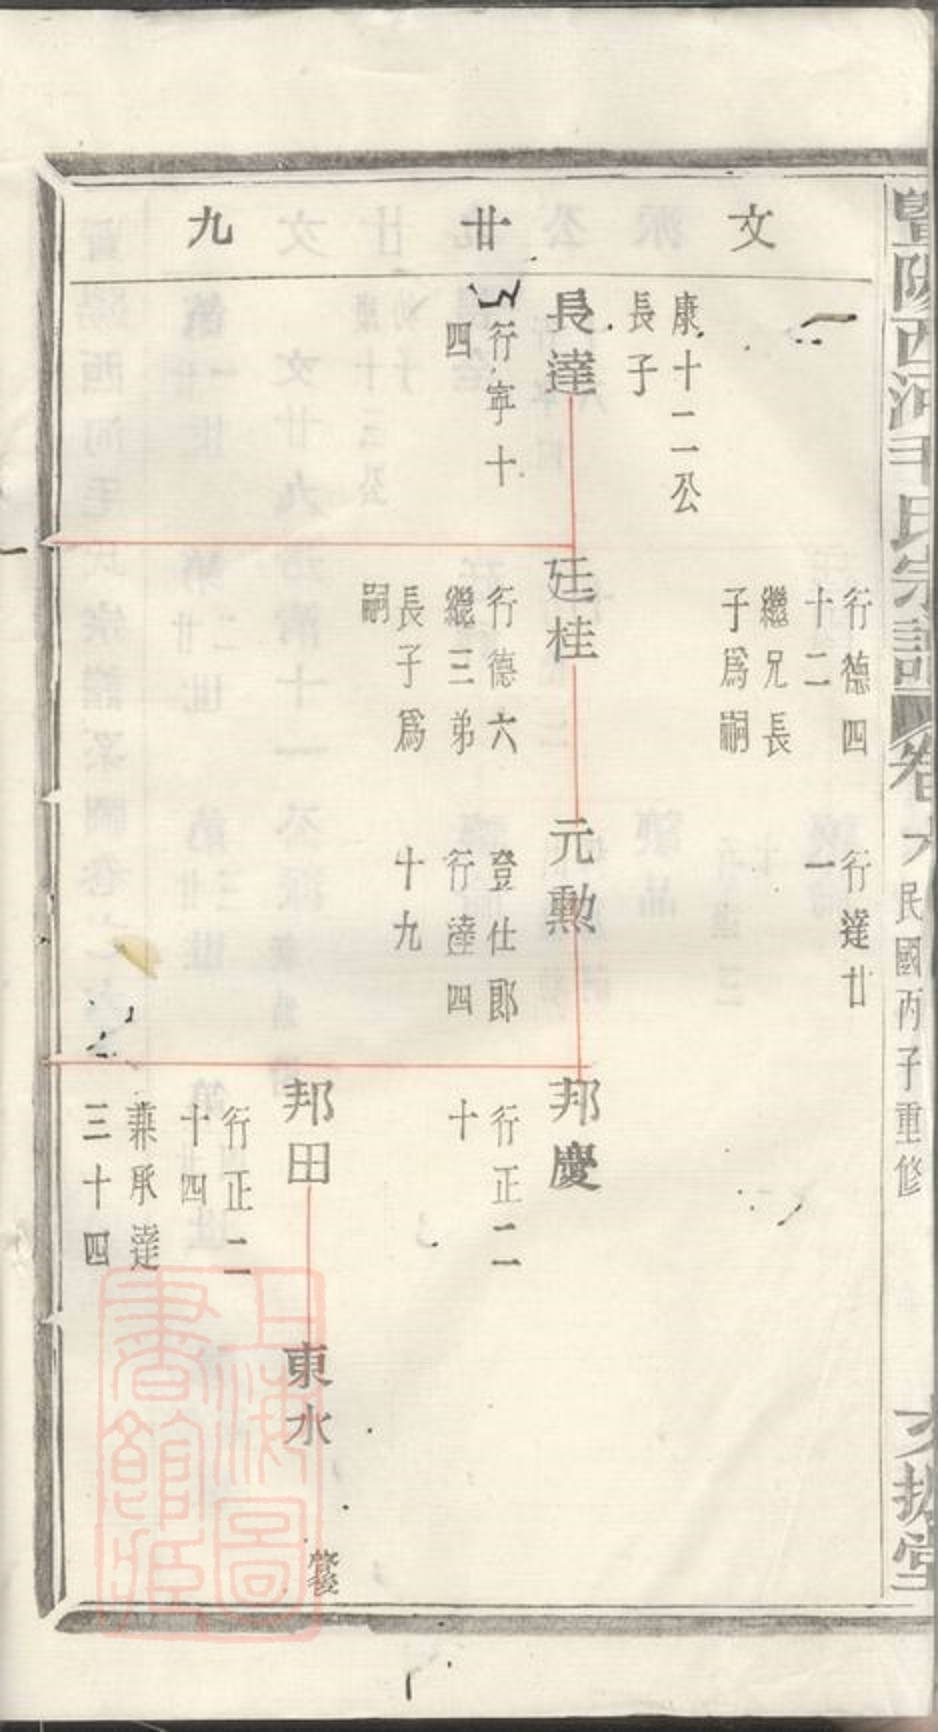 暨陽西河毛氏宗譜
卷六
民國丙子重修
大振堂
文廿九
行德四
十二
繼兄長
子爲嗣
行達廿
一
康十二公
長子
長達
行寧十
四
廷桂
行德六
繼三弟
長子爲
嗣
元勳
登仕郎
行達四
十九
邦慶
行正二
十
邦田
行正二
十四
兼承達
三十四
東水
上海圖
書館藏